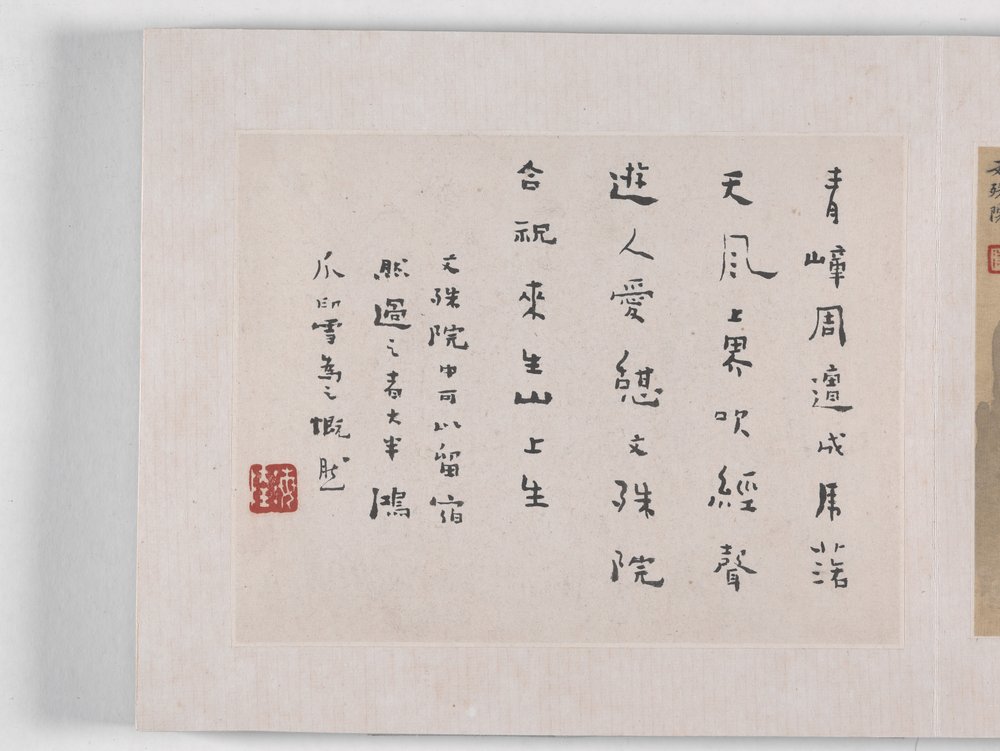 文殊院
青嶂周邅成虎落
天風上界吹經聲
遊人愛憇文殊院
合祝來生山上生
文殊院中可以留宿
然過之者大半鴻
爪印雪為之慨然